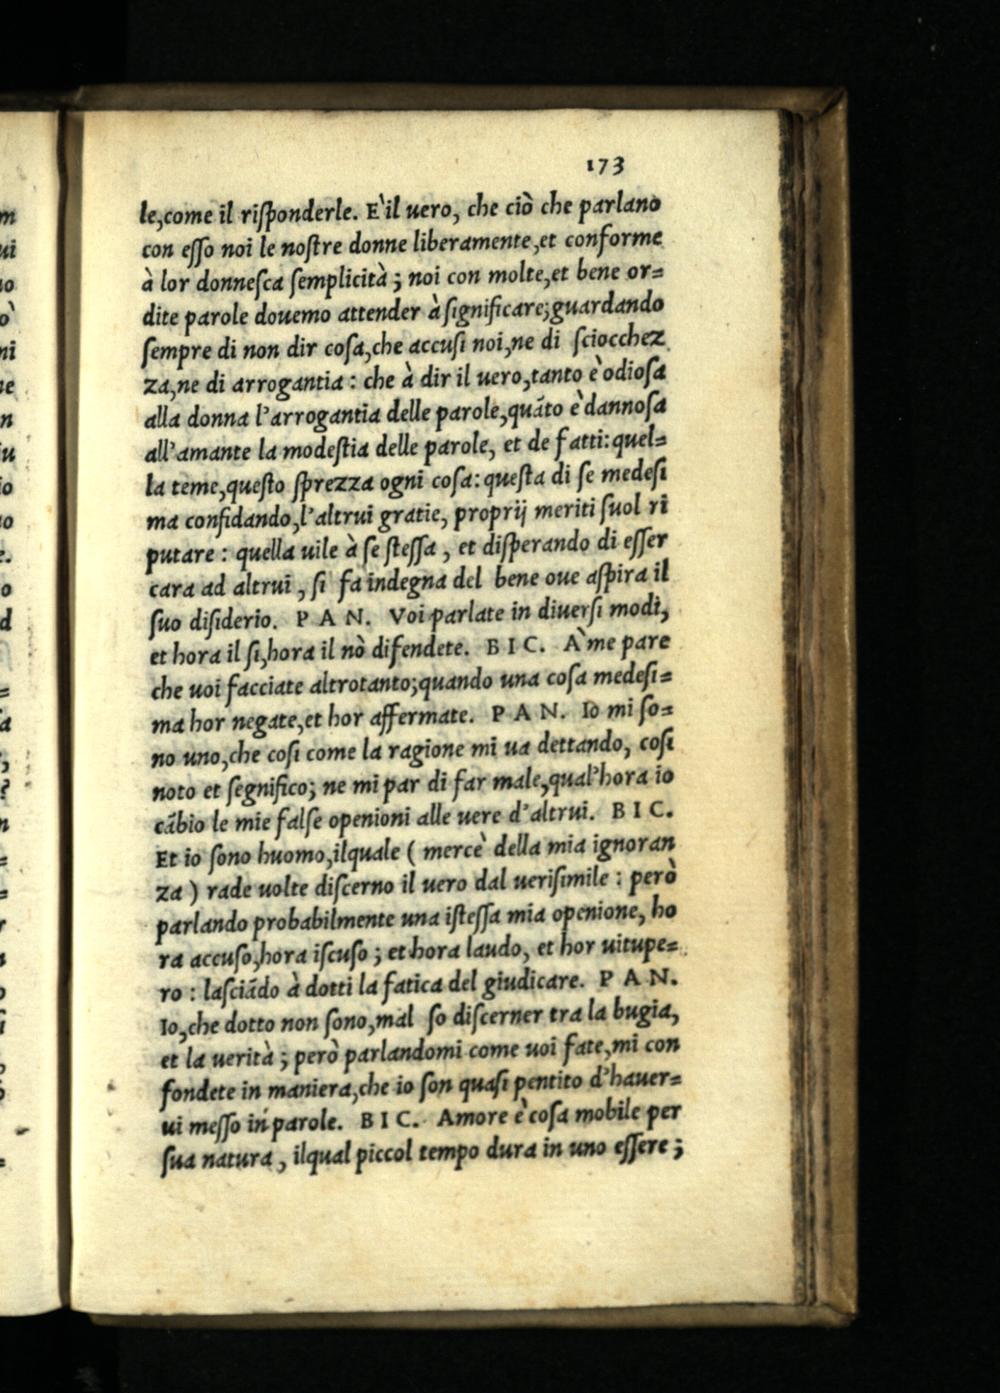 173
le,come il riſponderle. E'il uero, che ciò che parlano
con eſſo noi le noſtre donne liberamente,et conforme
à lor donneſca ſemplicità ; noi con molte,et bene or=
dite parole douemo attender à ſignificare;guardando
ſempre di non dir coſa,che accuſi noi,ne di ſciocchez
za,ne di arrogantia : che à dir il uero,tanto è odioſa
alla donna l'arrogantia delle parole,quãto è dannoſa
all'amante la modeſtia delle parole, et de fatti:quel=
la teme,queſto ſprezza ogni coſa:queſta di ſe medeſi
ma confidando,l'altrui gratie, proprij meriti ſuol ri
putare : quella uile à ſe ſteſſa , et diſperando di eſſer
cara ad altrui , ſi fa indegna del bene oue aſpira il
ſuo diſiderio. P A N. Voi parlate in diuerſi modi,
et hora il ſi,hora il nò difendete. B I C. A'me pare
che uoi facciate altrotanto;quando una coſa medeſi=
ma hor negate,et hor affermate. P A N. Io mi ſo=
no uno,che coſi come la ragione mi ua dettando, coſi
noto et ſegnifico; ne mi par di far male,qual'hora io
cãbio le mie falſe openioni alle uere d'altrui. B I C.
Et io ſono huomo,ilquale ( mercè della mia ignoran
za ) rade uolte diſcerno il uero dal ueriſimile : però
parlando probabilmente una iſteſſa mia openione, ho
ra accuſo,hora iſcuſo ; et hora laudo, et hor uitupe=
ro : laſciãdo à dotti la fatica del giudicare. P A N.
Io,che dotto non ſono,mal ſo diſcerner tra la bugia,
et la uerità ; però parlandomi come uoi fate,mi con
fondete in maniera,che io ſon quaſi pentito d'hauer=
ui meſſo in parole. B I C. Amore è coſa mobile per
ſua natura , ilqual piccol tempo dura in uno eſſere ;